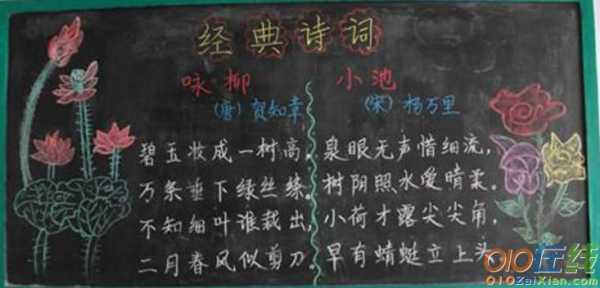 经典诗词
咏柳
(唐) 贺知章
碧玉妆成一树高。
万条垂下绿丝绦。
不知细叶谁裁出，
二月春风似剪刀。
小池
(宋) 杨万里
泉眼无声惜细流，
树阴照水爱晴柔。
小荷才露尖尖角，
早有蜻蜓立上头
010在线
010ZaiXian.com